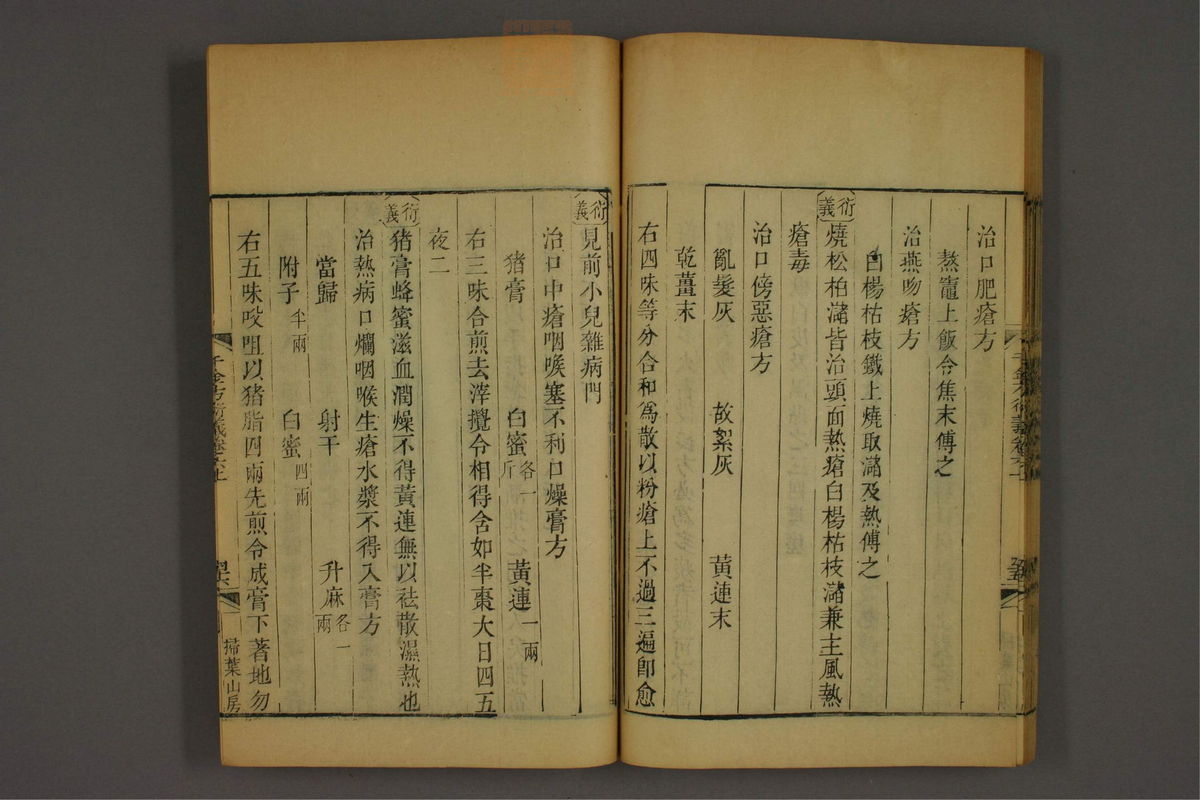 治口肥瘡方
熬竈上飯令焦末傅之
治燕吻瘡方
白楊枯枝鐵上燒取瀋及熱傅之
衍義 燒松柏瀋皆治頭面熱瘡白楊枯枝瀋兼主風熱
瘡毒
治口傍惡瘡方
亂髮灰 故絮灰 黃連末
乾薑末
右四味等分合和為散以粉瘡上不過三遍即愈
衍義 見前小兒雜病門
治口中瘡咽喉塞不利口燥膏方
猪膏 白蜜各一斤 黃連一兩
右三味合煎去滓攪令相得含如半棗大日四五
夜二
衍義 猪膏蜂蜜滋血潤燥不得黃連無以祛散濕熱也
治熱病口爛咽喉生瘡水漿不得入膏方
當歸 射干 升麻各一兩
附子半兩 白蜜四兩
右五味㕮咀以猪脂四兩先煎令成膏下著地勿
千金方衍義卷六上
掃葉山房